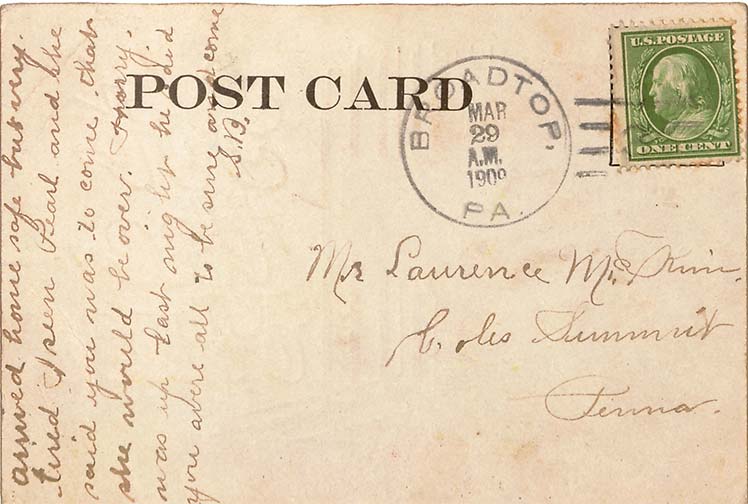 POST CARD
BROADTOP,
MAR
29
A.M.
1909
PA.
U.S. POSTAGE
ONE CENT
Mr Laurence
Coles Summit
Penna.
arrived home safe but very
tired I seen Pearl and she
said you was to come that
she would be over. Harry.
was up last night he did
you were all to be sure and come
S.B.